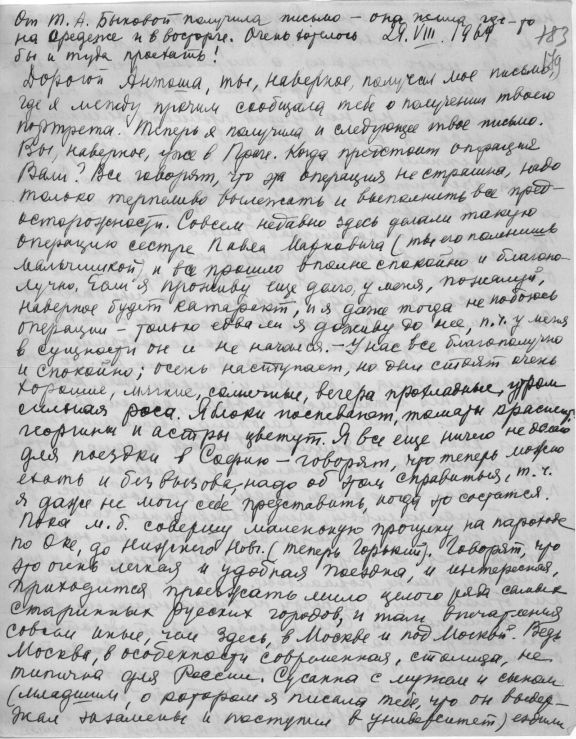 От Т. А. Быковой получила письмо – она жила где-то
на Оредеже и в восторге. Очень хотелось 29. VIII. 1964
бы и туда проехать! 183
179
Дорогой Антоша, ты, наверное, получил мое письмо,
где я между прочим сообщала тебе о получении твоего
портрета. Теперь я получила и следующее твое письмо.
Вы, наверное, уже в Праге. Когда предстоит операция
Вали? Все говорят, что эта операция не страшна, надо
только терпеливо вылежать и выполнить все пред-
осторожности. Совсем недавно здесь делали такую
операцию сестре Павла Марковича (ты его помнишь
мальчишкой) и все прошло вполне спокойно и благопо-
лучно. Если я проживу еще долго, у меня, пожалуй,
наверное будет катаракт, и я даже тогда не побоюсь
операции – только едва ли я доживу до нее, п.ч. у меня
в сущности он и не начался. – У нас все благополучно
и спокойно; осень наступает, но дни стоят очень
хорошие, мягкие, солнечные, вечера прохладные, утром
сильная роса. Яблоки поспевают, томаты краснеют,
георгины и астры цветут. Я все еще ничего не делаю
для поездки в Софию – говорят, что теперь можно
ехать и без вызова, надо об этом справиться, т. ч.
я даже не могу себе представить, когда это состоится.
Пока м. б. совершу маленькую прогулку на пароходе
по Оке, до Нижнего Новг. (теперь Горький). Говорят, что
это очень легкая и удобная поездка, и интересная,
приходится проезжать мимо целого ряда самых
старинных русских городов, и там впечатления
совсем иные, чем здесь, в Москве и под Москвой. Ведь
Москва, в особенности современная, столица, не
типична для России. Сусанна с мужем и сыном
(младшим, о котором я писала тебе, что он выдер-
жал экзамены и поступил в университет) ездили